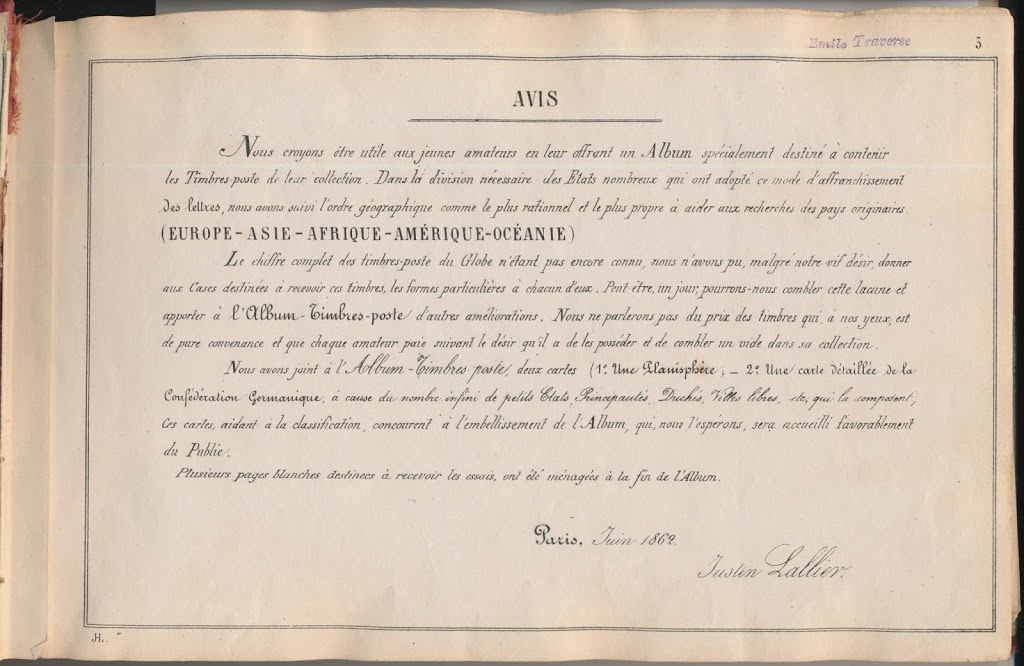 Emile Traverse
3
AVIS
Nous croyons être utile aux jeunes amateurs en leur offrant un Album spécialement destiné à contenir
les Timbres-poste de leur collection. Dans la division nécessaire des Etats nombreux qui ont adopté ce mode d'affranchissement
des lettres, nous avons suivi l'ordre géographique comme le plus rationnel et le plus propre à aider aux recherches des pays originaires.
(EUROPE-ASIE-AFRIQUE-AMÉRIQUE-OCÉANIE)
Le chiffre complet des timbres-poste du Globe n'étant pas encore connu, nous n'avons pu, malgré notre vif désir, donner
aux Cases destinées à recevoir ces timbres, les formes particulières à chacun d'eux. Peut-être, un jour, pourrons-nous combler cette lacune et
apporter à l'Album-Timbres-poste d'autres améliorations. Nous ne parlerons pas du prix des timbres qui, à nos yeux, est
de pure convenance et que chaque amateur paie suivant le désir qu'il a de les posséder et de combler un vide dans sa collection.
Nous avons joint à l'Album-Timbres-poste, deux cartes (1º Une Planisphère; — 2º Une carte détaillée de la
Confédération Germanique, à cause du nombre infini de petits Etats, Principautés, Duchés, Villes libres, etc, qui la composent;
Ces cartes, aidant à la classification, concourent à l'embellissement de l'Album, qui, nous l'espérons, sera accueilli favorablement
du Public.
Plusieurs pages blanches destinées à recevoir les essais, ont été ménagées à la fin de l'Album.
Paris, Juin 1862.
Justin Lallier.
JL.